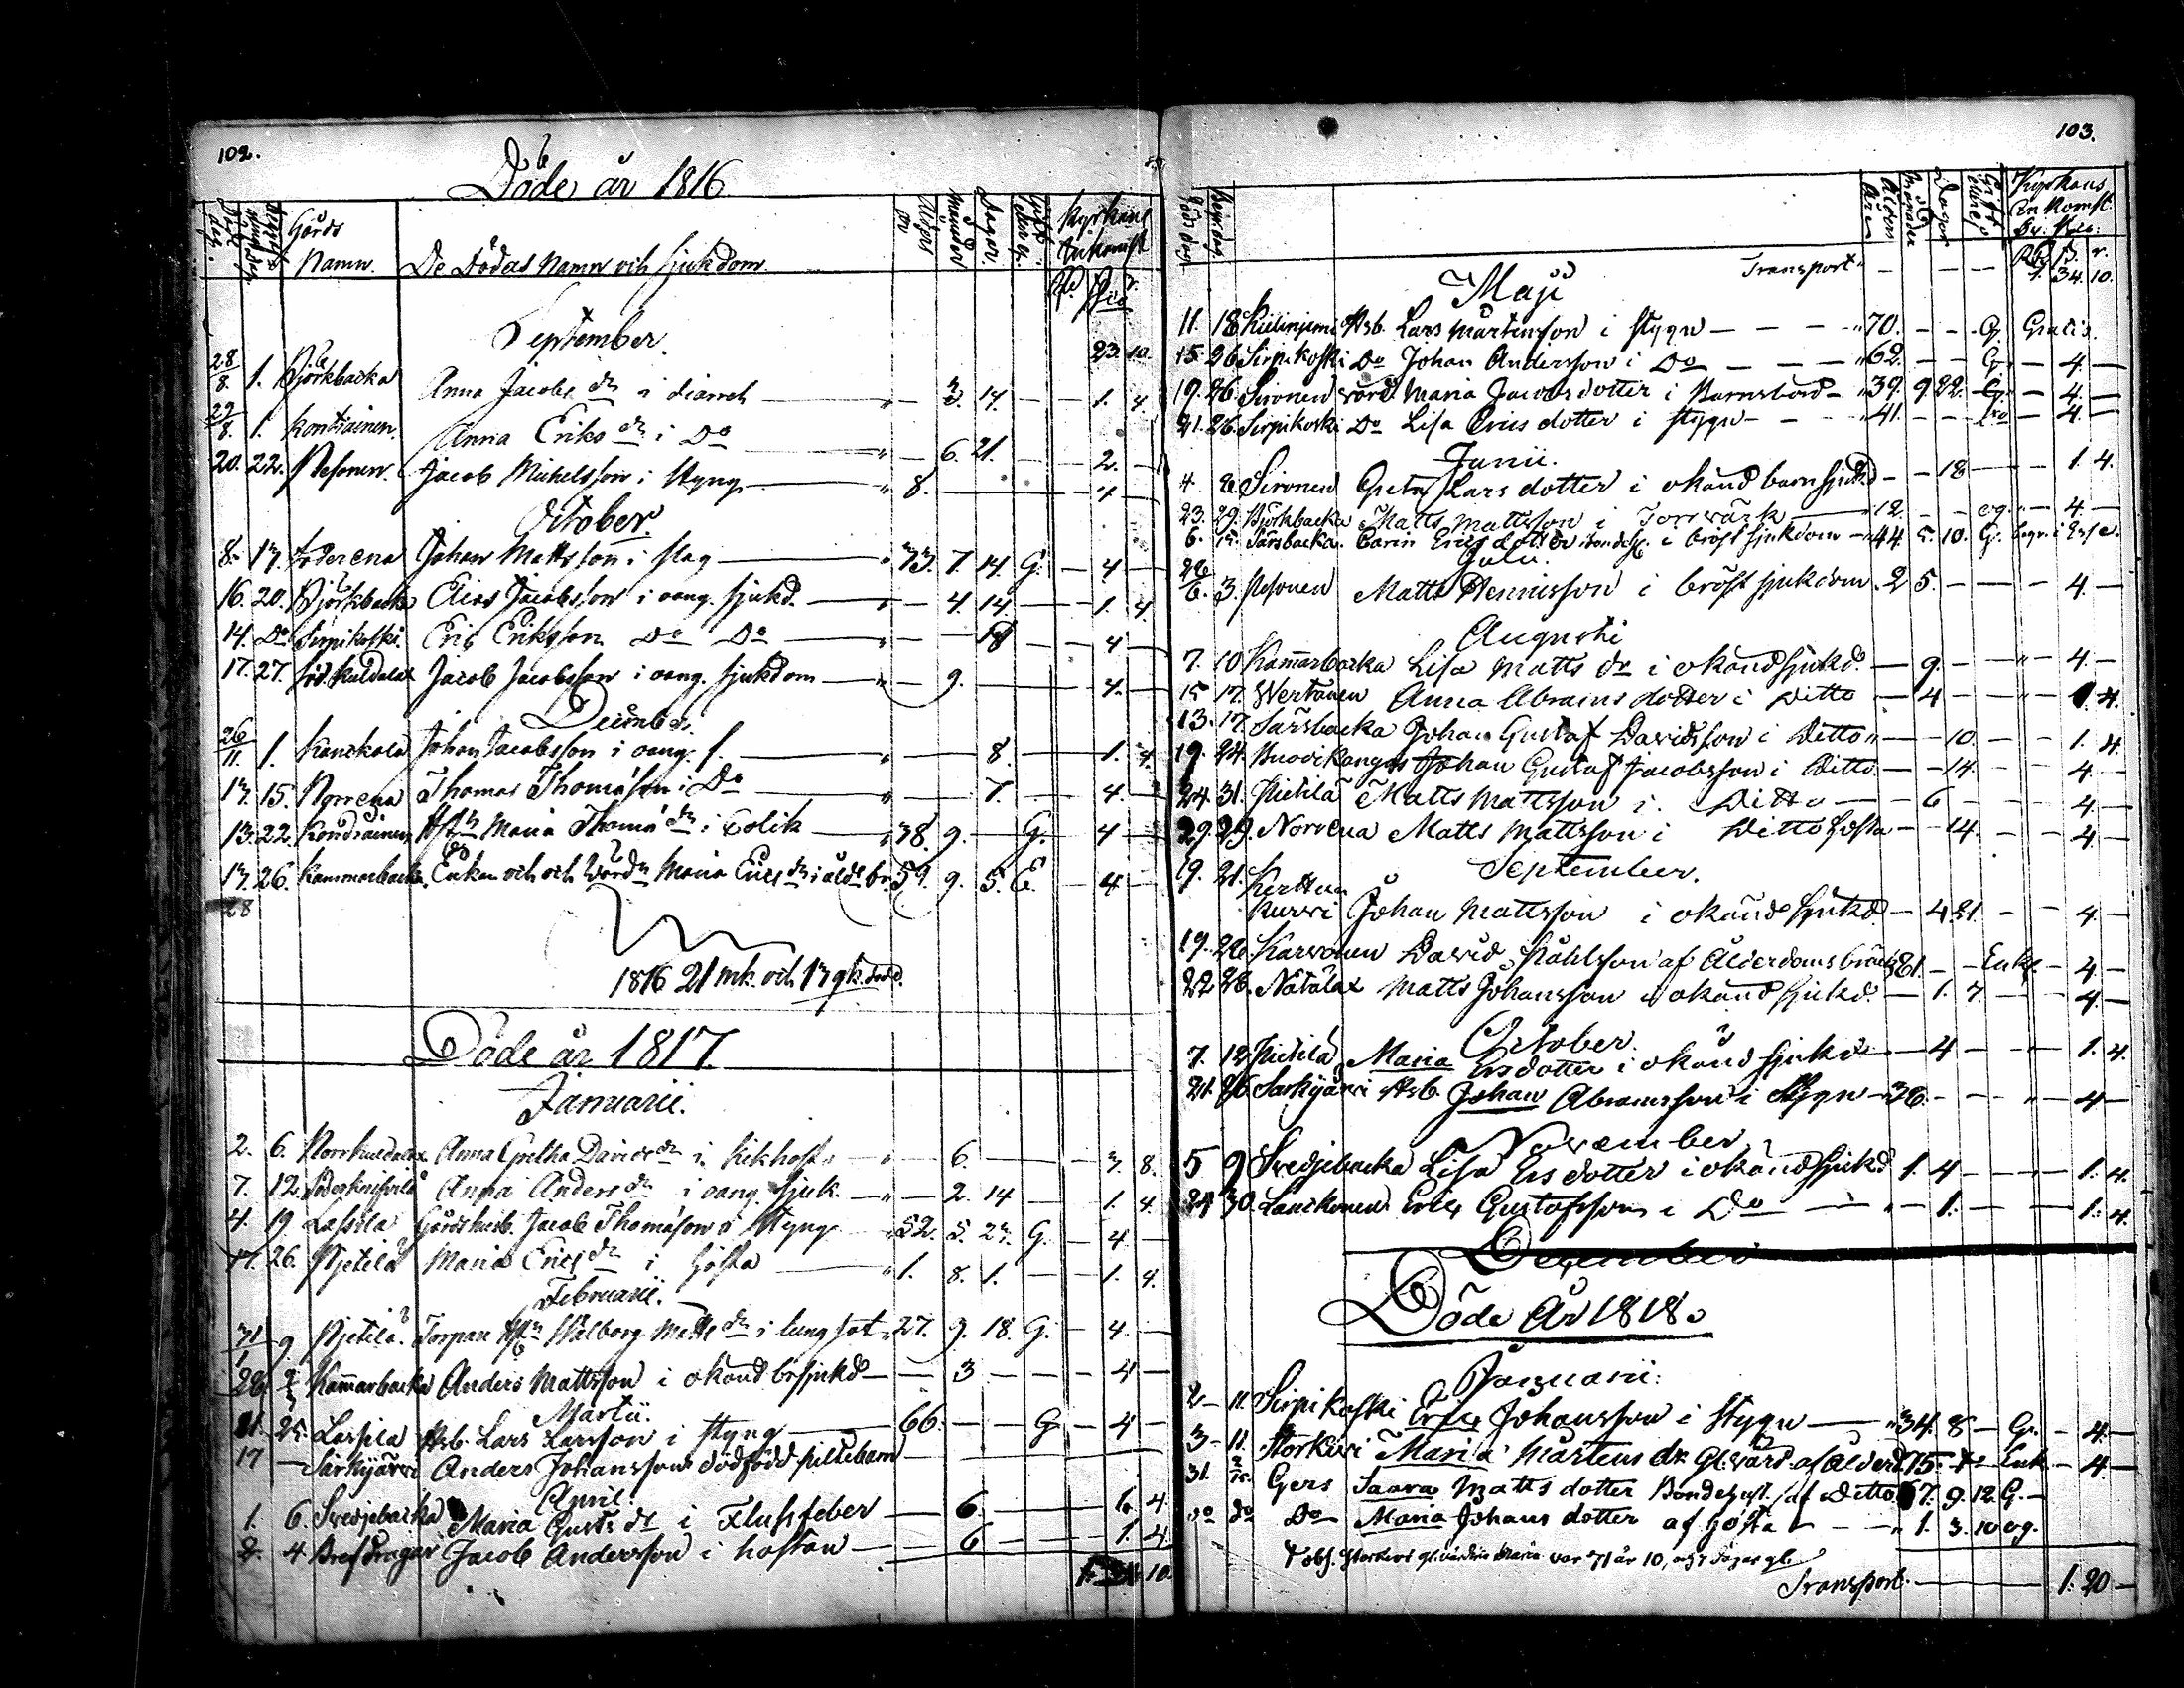 102.
Döde år 1816
Gårds Namn. De Dödas Namn och sjukdom. Ålder år Månader Dagar. Gift Kyrkans Inkomst
September.
23. 10.
28/8. 1. Björkbacka Anna Jacobs dr i diarrh — 3. 14. — 1. 4.
29/8. 1. Kontiainen. Anna Eriks dr i Do — 6. 21. — 2. —
20. 22. Pesonen. Jacob Michelsson i Styng — 8. — 4 —
October.
8. 13. Söderena Johan Mattsson i slag — 73. 7. 14. G. — 4 —
16. 20. Björkbacka Elias Jacobsson i oang. sjukd. — 4. 14 — 1. 4
14. Do Sirpikoski. Eric Eriksson Do Do — 18 — 4 —
17. 27. Söd. Kuldalax Jacob Jacobsson i oang. sjukdom — 9. — 4. —
December.
26/11. 1. Kanckala Johan Jacobsson i oang. s. — 8. — 1. 4.
13. 15. Norrena Thomas Thomasson i Do — 7. — 4. —
13. 22. Kondiainen Hstr Maria Thoma dr i Colik — 38. 9. — G. — 4 —
17. 26. Kammarbacka. Enkan och Wärdn Maria Erics dr i åldr br. 59. 9. 5. E. — 4 —
28
1816 21 mk. och 13 qk. döde.
Döde år 1817.
Januarii.
2. 6. Norrkuldalax Anna Gretha Davids dr i Kikhosta — 6. — 3. 8.
7. 12. Anna Anders dr i oang. sjuk. — 2. 14 — 1. 4.
4. 19. Lassila Gårdshusb. Jacob Thomasson i Styng — 52. 5. 23. G. — 4 —
17. 26. Pjetilä Maria Erics dr i hosta — 1. 8. 1. — 1. 4.
Februarii.
31/1 9. Pjetilä. Torpare Hstr Walborg Matts dr i lungsot 27. 9. 18. G. — 4. —
28 2/3 Kammarbacka Anders Mattsson i okänd brsjukd — 3 — 4 —
Martii.
21. 25. Lassila Hsb. Lars Larsson i styng — 66. — G. — 4 —
17 — Särkijärvi Anders Johanssons dödfödd piltebarn
April.
1. 6. Svedjebacka Maria Gusts dr i Flussfeber — 6. — 1. 4
2. 4 Brefdragar Jacob Andersson i hostan — 6 — 1. 4
10.
103.
Kyrkans Inkomst.
Transport — 1. 34. 10.
Maji
11. 18 Hsb. Lars Mårtensson i styng — 70. — G. Gratis.
15. 26 Sirpikoski Do Johan Andersson i Do — 62. — G. — 4. —
19. 26. Sironen värd. Maria Jacobsdotter i Barnsbörd — 39. 9 22. G. — 4. —
21. 26. Sirpikoski Do Lisa Erics dotter i styng — 41. — Do — 4. —
Junii.
4 8 Sironen Greta Larsdotter i okänd barnsjukd — 18 — 1. 4.
23. 29. Björkbacka Matts Mattsson i Torrvärk — 12. — og. — 4. —
6. 15. Särsbacka. Carin Ericsdotter i bröstsjukdom — 44. 5. 10. G.
Julii.
26/6. 3. Pesonen Matts Hennicsson i bröstsjukdom 2 5. — 4. —
Augusti
7. 10 Kammarbacka Lisa Matts dr i okänd sjukd. — 9. — 4. —
15 17. Wertanen Anna Abrams dotter i Ditto — 4 — 1. 4.
13. 17. Särsbacka Johan Gustaf Davidsson i Ditto — 10. — 1. 4.
19. 24. Johan Gustaf Jacobsson i Ditto. — 14. — 4 —
24. 31. Pietilä Matts Mattsson i Ditto — 6 — 4. —
29. 29. Norrena Matts Mattsson i Ditto hosta — 14. — 4 —
September.
19. 21. Kerttu Kurvi Johan Mattsson i okänd sjukd. — 4 21. — 4. —
19. 26. Karvonen David Påhlsson af Ålderdoms bräck 81. — Enkl. — 4. —
22 28. Nätälax Matts Johansson i okänd sjukd. — 1. 7. — 4. —
October.
7. 12. Pietilä Maria Ersdotter i okänd sjukd — 4 — 1. 4.
21. 26. Särkijärvi Hsb. Johan Abramsson i Styng — 36. — 4 —
November
5 9 Svedjebacka Lisa Ersdotter i okänd sjukd 1. 4 — 1. 4.
24 30. Lauckonen Eric Gustafsson i Do — 1. — 1. 4.
December
Döde År 1818.
Januarii.
2 — 11. Sirpikoski Eric Johansson i styng — 34. 8 — G. — 4. —
3 — 11. Storkivi Maria Mårtens dr. gl. värd. af Ålderd. 75 — Enk. — 4. —
31. 2/15. Gers Saara Matts dotter Bondehust. af Ditto 67. 9. 12. G. —
Do Do Do Maria Johans dotter af hosta — 1. 3. 10 og.
obs. Storkivi gl. värdin Maria var 71 år 10, och 7 dagar gl.
Transport. — 1. 20 —